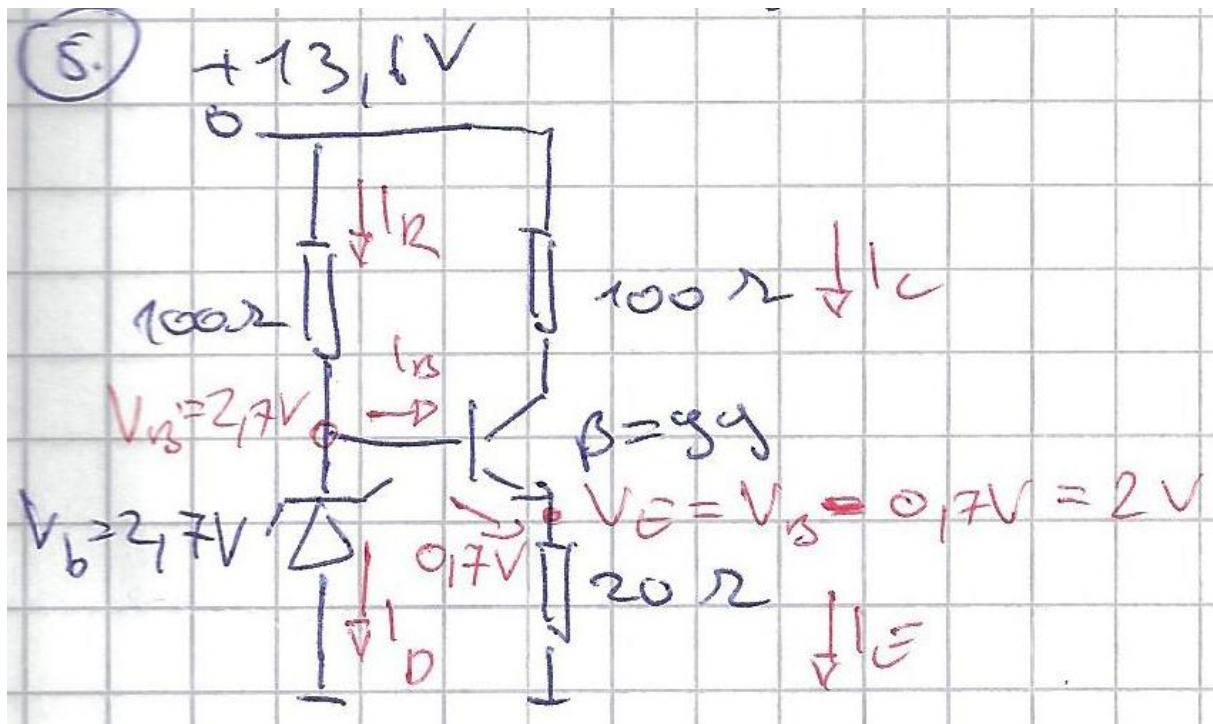 5.
+13,6V
I_R
100Ω
100Ω
I_C
I_B
V_B=2,7V
β=99
V_b=2,7V
0,7V
V_E=V_B-0,7V=2V
20Ω
I_D
I_E